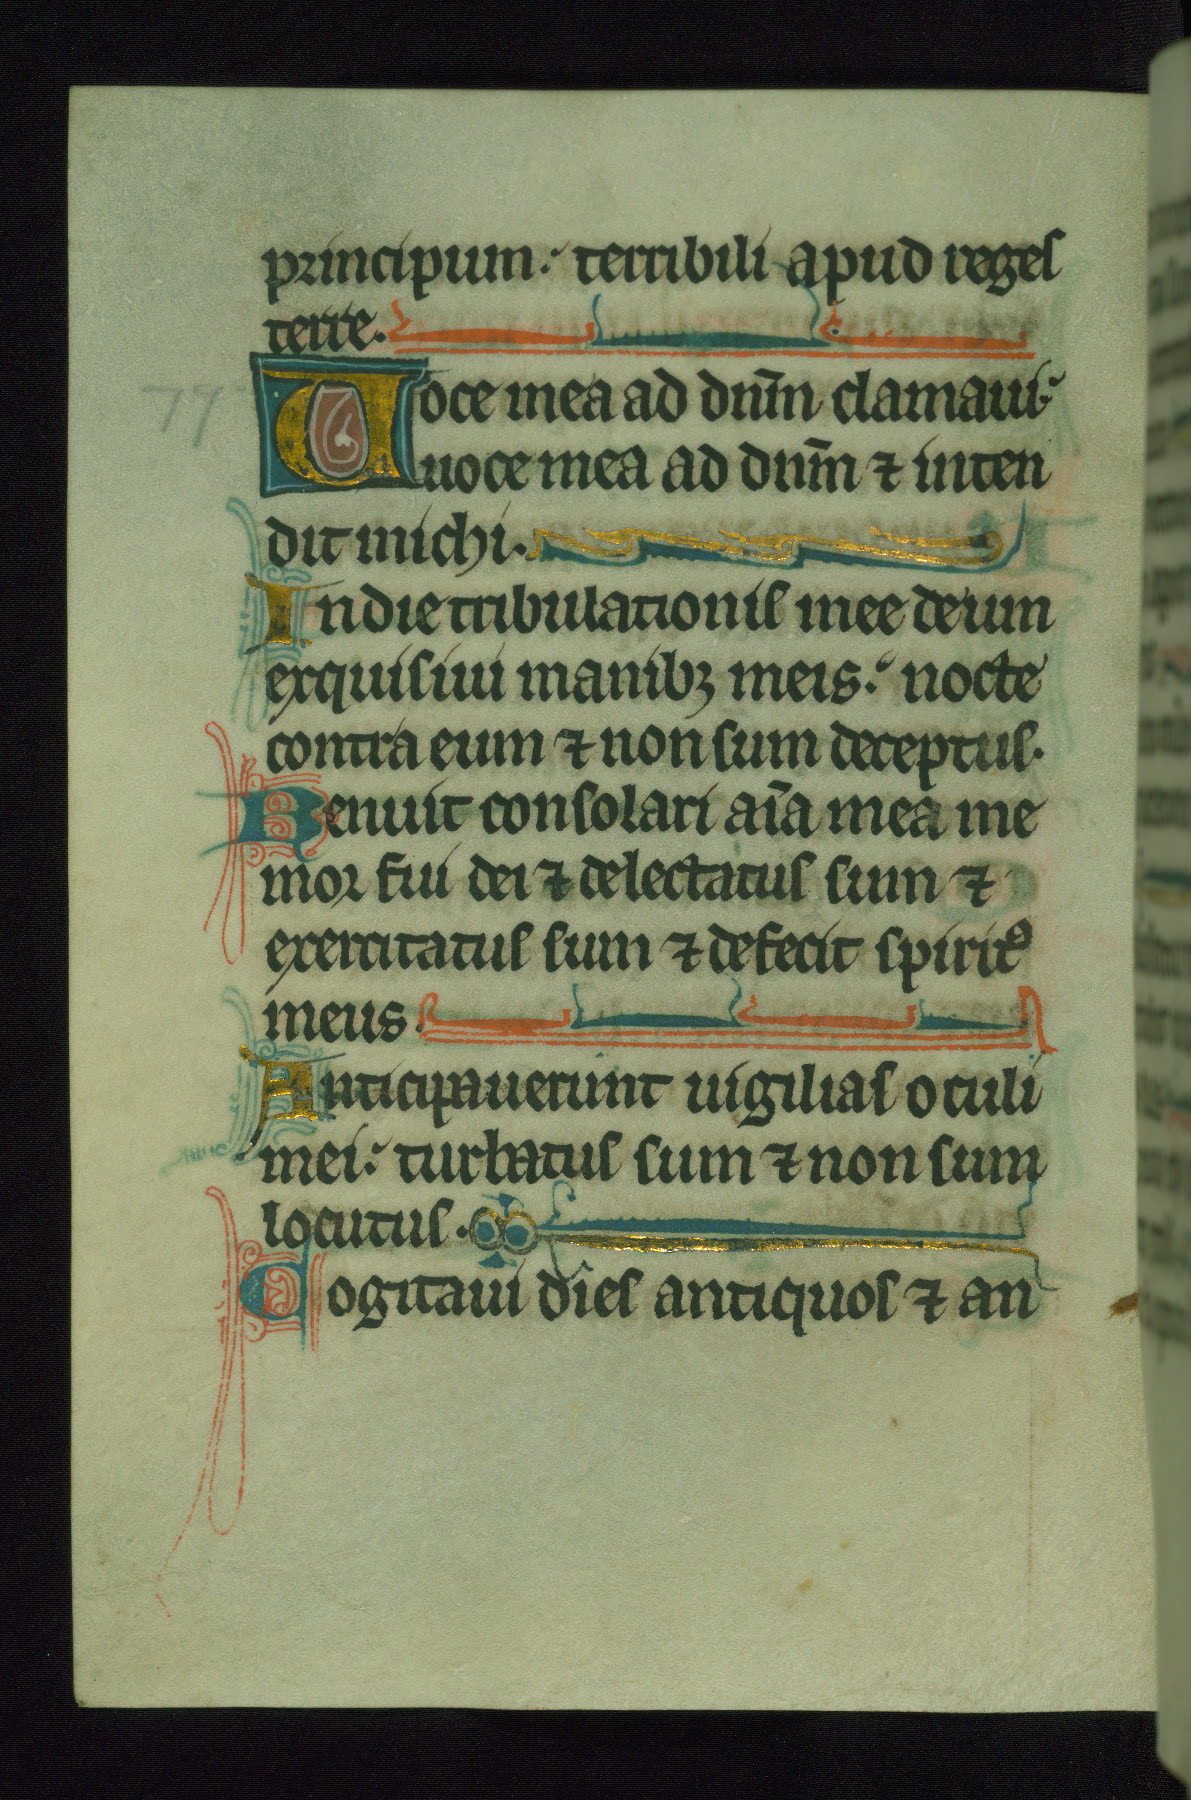 principum: terribili apud reges
terre.
Uoce mea ad dn̄m clamaui:
uoce mea ad dn̄m ⁊ inten
dit michi.
77
In die tribulationis mee deum
exquisiui manibꝫ meis: nocte
contra eum ⁊ non sum deceptus.
Renuit consolari aīa mea me
mor fui dei ⁊ delectatus sum ⁊
exercitatus sum ⁊ defecit spiritꝰ
meus.
Anticipauerunt uigilias oculi
mei: turbatus sum ⁊ non sum
locutus.
Cogitaui dies antiquos ⁊ an